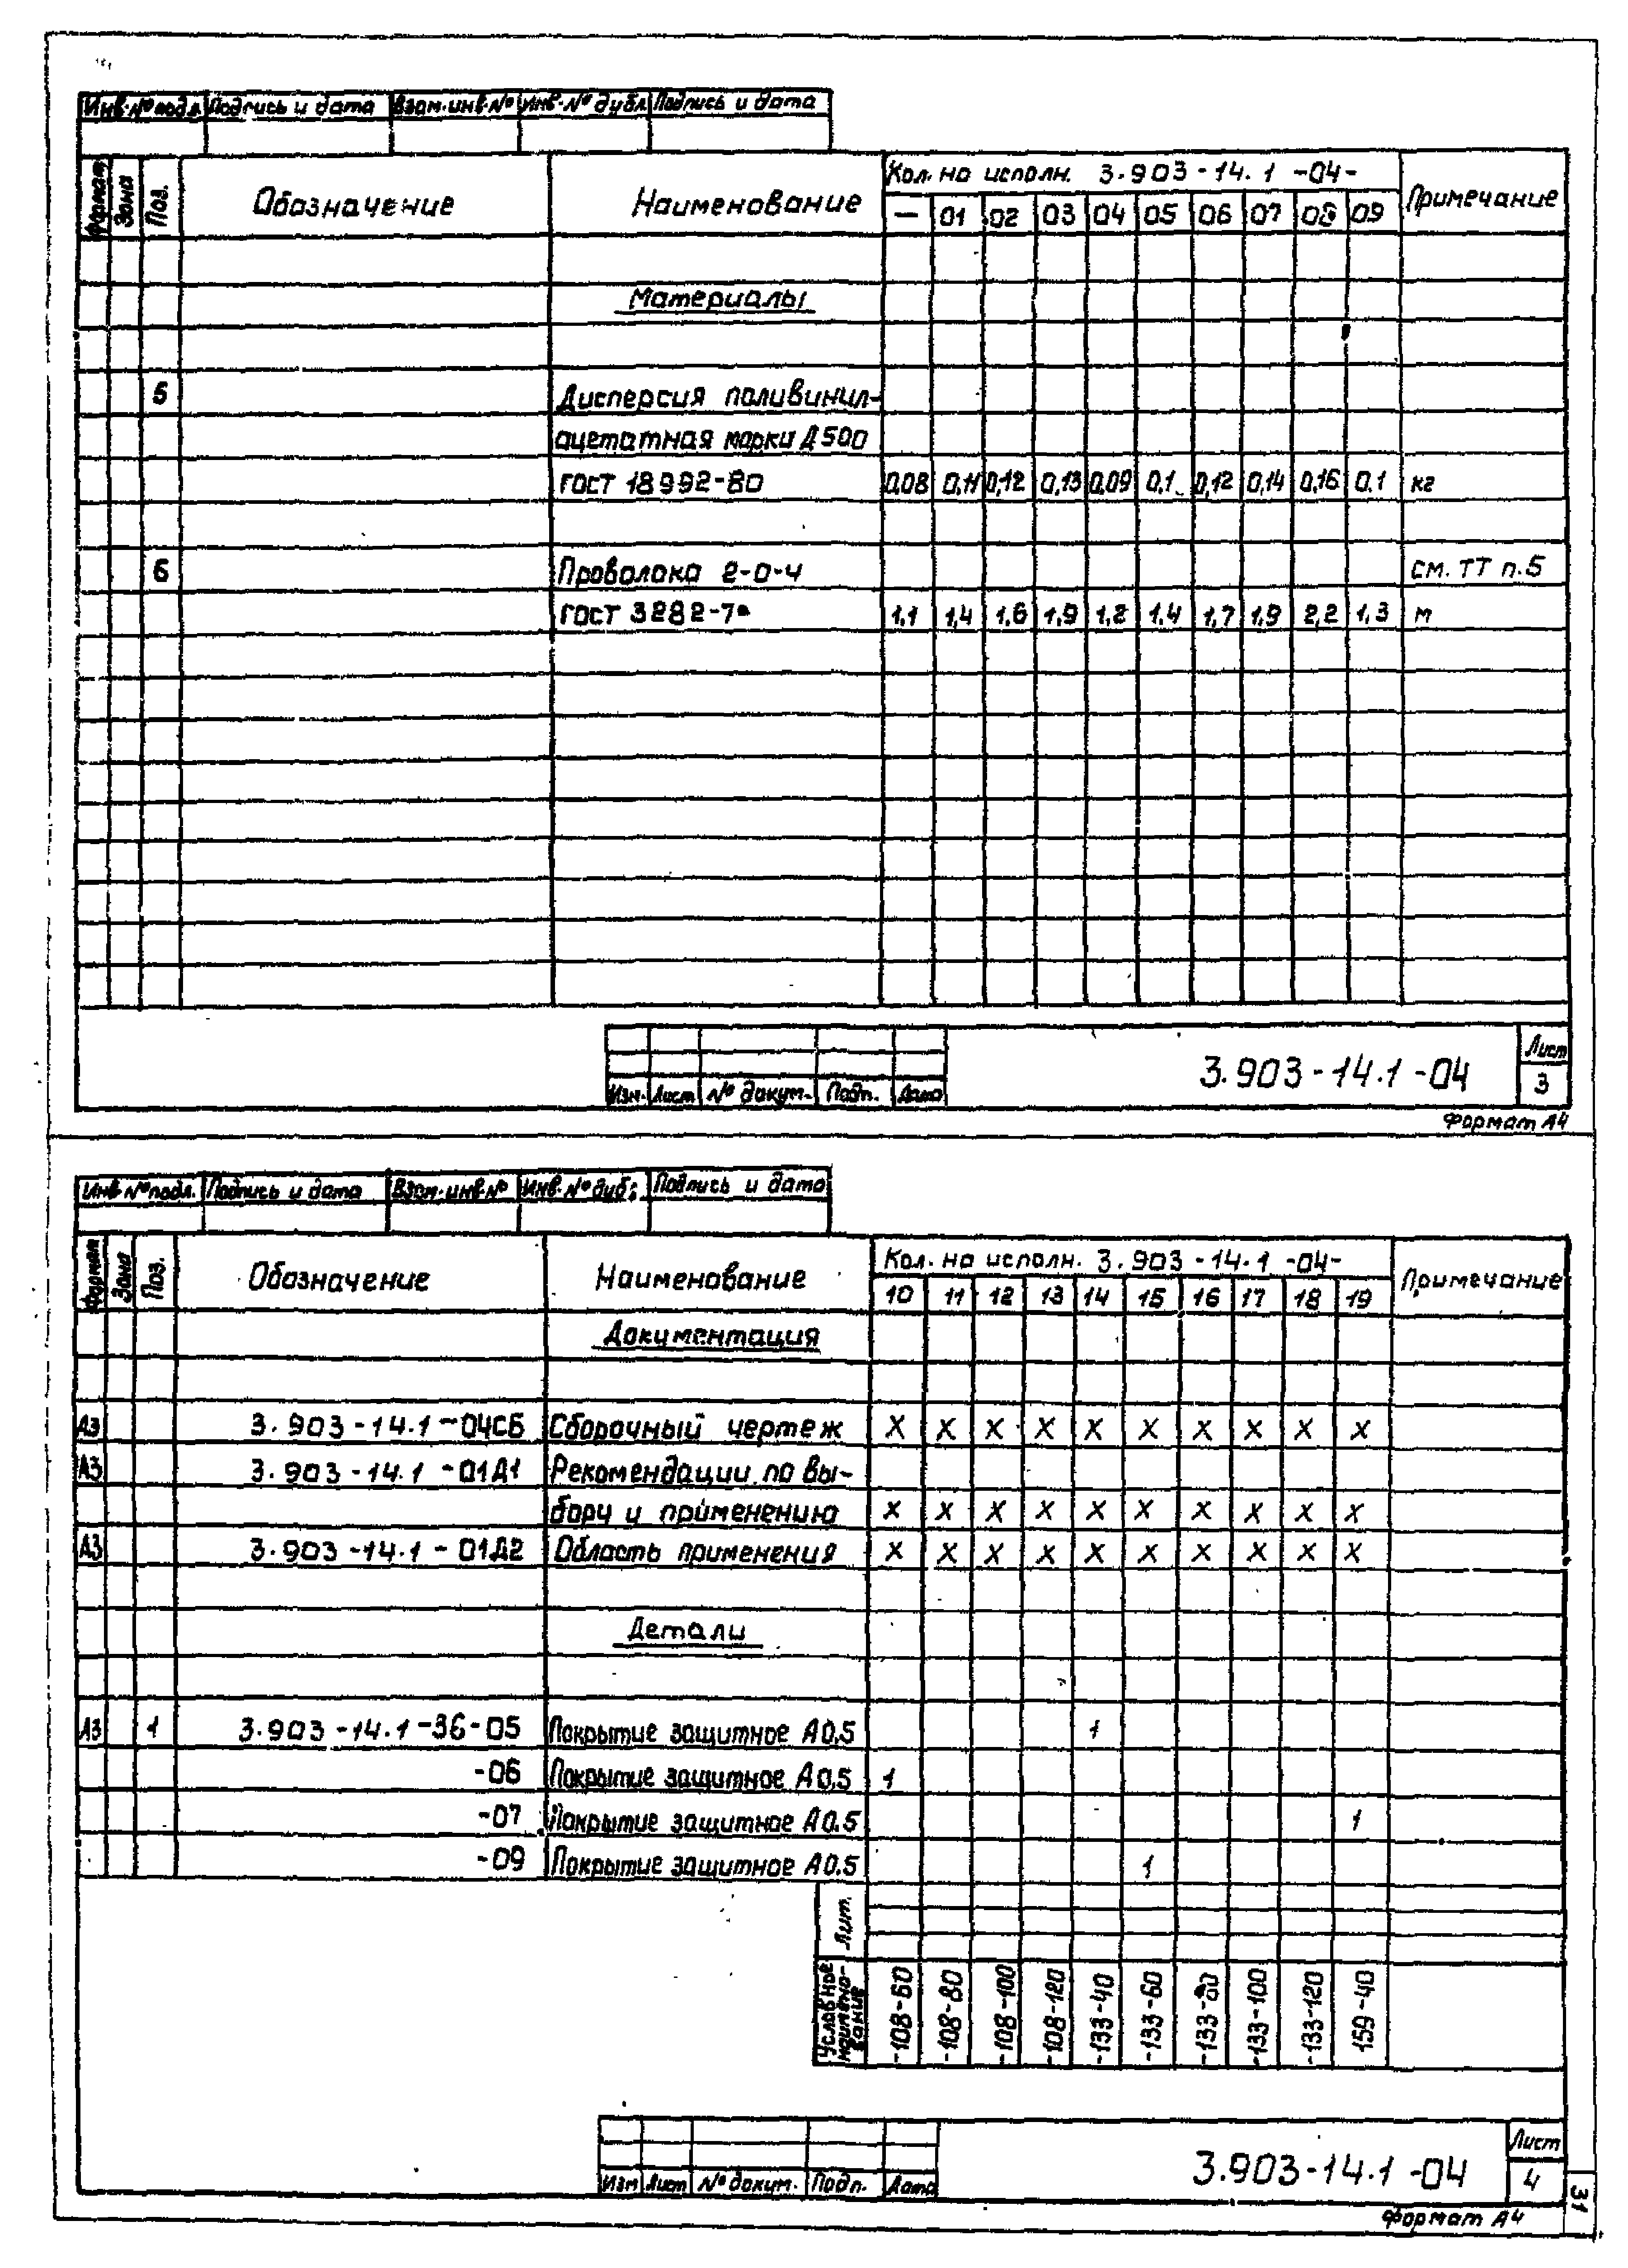 Инв.№ подл. Подпись и дата Взам.инв.№ Инв.№ дубл. Подпись и дата
Формат Зона Поз. Обозначение Наименование Кол. на исполн. 3.903-14.1-04- Примечание
— 01 02 03 04 05 06 07 08 09
Материалы
5 Дисперсия поливинил-
ацетатная марки Д500
ГОСТ 18992-80 0,08 0,11 0,12 0,13 0,09 0,1 0,12 0,14 0,16 0,1 кг
6 Проволока 2-0-4 см. ТТ п.5
ГОСТ 3282-7 1,1 1,4 1,6 1,9 1,2 1,4 1,7 1,9 2,2 1,3 м
3.903-14.1-04 Лист
Изм. Лист № докум. Подп. Дата 3
Формат А4
Инв.№ подл. Подпись и дата Взам.инв.№ Инв.№ дубл. Подпись и дата
Формат Зона Поз. Обозначение Наименование Кол. на исполн. 3.903-14.1-04- Примечание
10 11 12 13 14 15 16 17 18 19
Документация
А3 3.903-14.1-04СБ Сборочный чертеж X X X X X X X X X X
А3 3.903-14.1-01Д1 Рекомендации по вы-
бору и применению X X X X X X X X X X
А3 3.903-14.1-01Д2 Область применения X X X X X X X X X X
Детали
А3 1 3.903-14.1-36-05 Покрытие защитное А0.5 1
-06 Покрытие защитное А0.5 1
-07 Покрытие защитное А0.5 1
-09 Покрытие защитное А0.5 1
Лит.
Условное наимено-вание -108-60 -108-80 -108-100 -108-120 -133-40 -133-60 -133-80 -133-100 -133-120 159-40
3.903-14.1-04 Лист
Изм Лист № докум. Подп. Дата 4
31
Формат А4